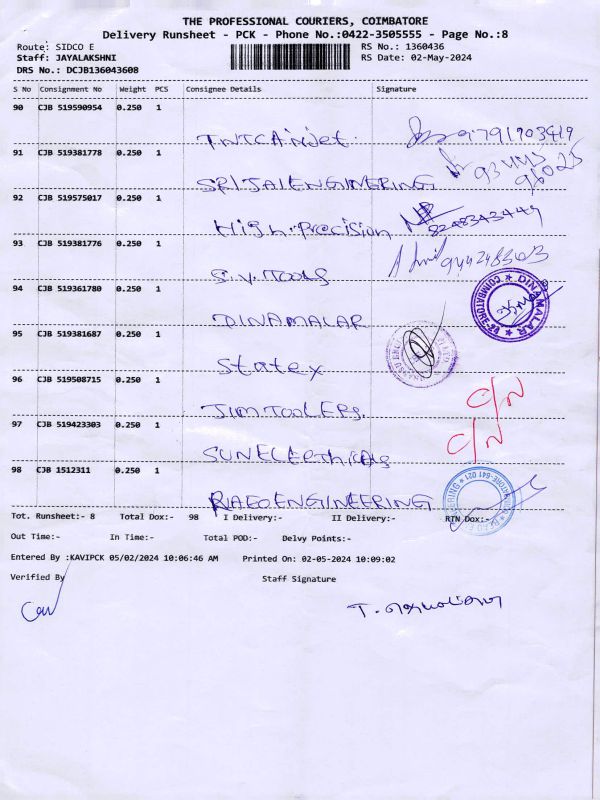 THE PROFESSIONAL COURIERS, COIMBATORE
Delivery Runsheet - PCK - Phone No.:0422-3505555 - Page No.:8
Route: SIDCO E RS No.: 1360436
Staff: JAYALAKSHNI RS Date: 02-May-2024
DRS No.: DCJB136043608
S No Consignment No Weight PCS Consignee Details Signature
90 CJB 519590954 0.250 1
TNTCAinjet. 9791903419
91 CJB 519381778 0.250 1
SRIJAIENGINEERING
92 CJB 519575017 0.250 1
High-Precision 8248343449
93 CJB 519381776 0.250 1
S.V.Tools
94 CJB 519361780 0.250 1
DINAMALAR DINAMALAR ★ COIMBATORE-24 ★
95 CJB 519381687 0.250 1
Statex
96 CJB 519508715 0.250 1
JIMTOOLERS. C/N
97 CJB 519423303 0.250 1
C/N
98 CJB 1512311 0.250 1
ENGINEERING
Tot. Runsheet:- 8 Total Dox:- 98 I Delivery:- II Delivery:- RTN Dox:-
Out Time:- In Time:- Total POD:- Delvy Points:-
Entered By :KAVIPCK 05/02/2024 10:06:46 AM Printed On: 02-05-2024 10:09:02
Verified By Staff Signature